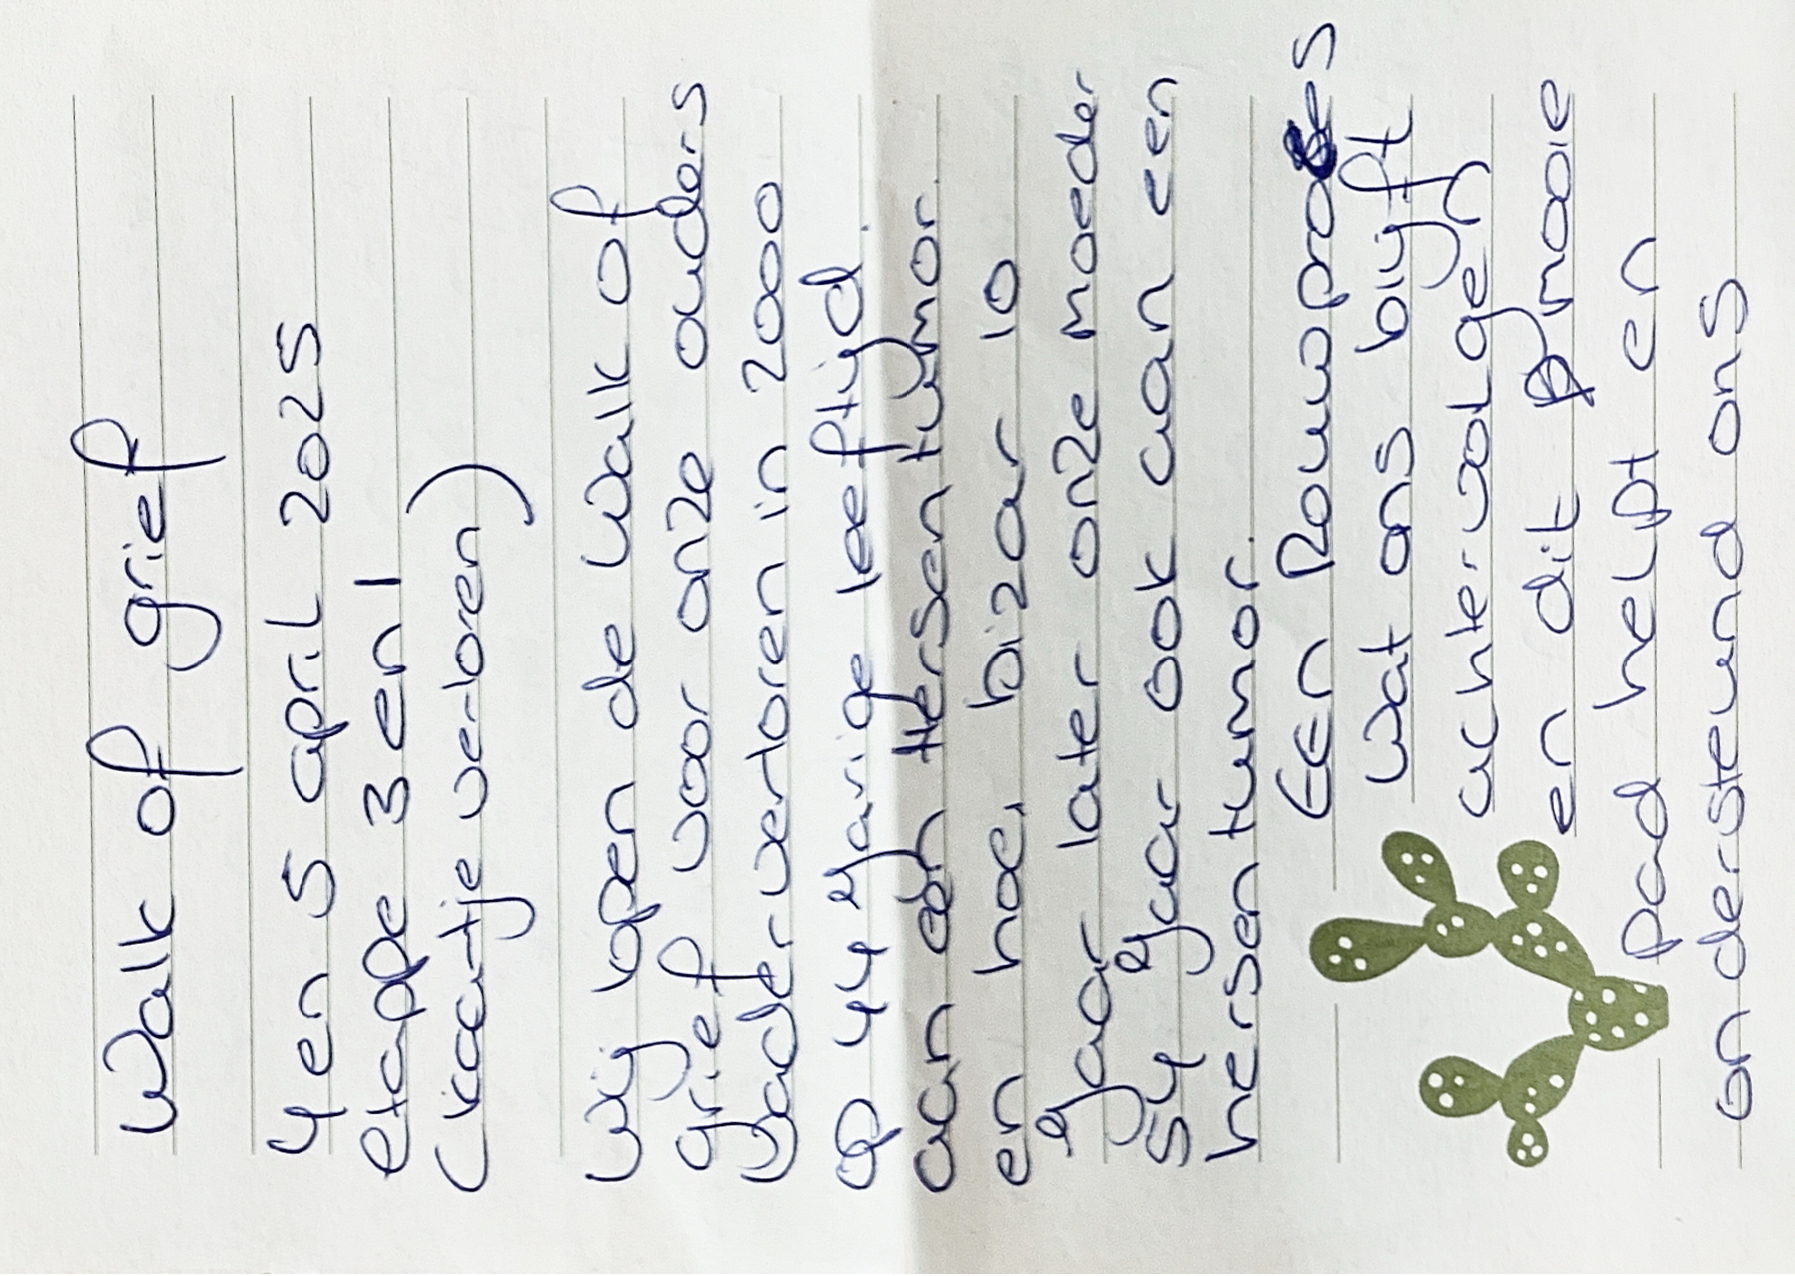 Walk of grief
4 en 5 april 2025
etape 3 en 1
(kaartje verloren)
Wij lopen de Walk of
grief voor onze ouders
Vader verloren in 2000
op 44 Yarige leeftijd.
aan een Hersentumor.
en hoe, bizar 10
Yaar later onze moeder
54 Yaar ook aan een
hersentumor.
EEn Rouwproces
wat ons blijft
achtervolgen
en dit mooie
pad helpt en
ondersteund ons